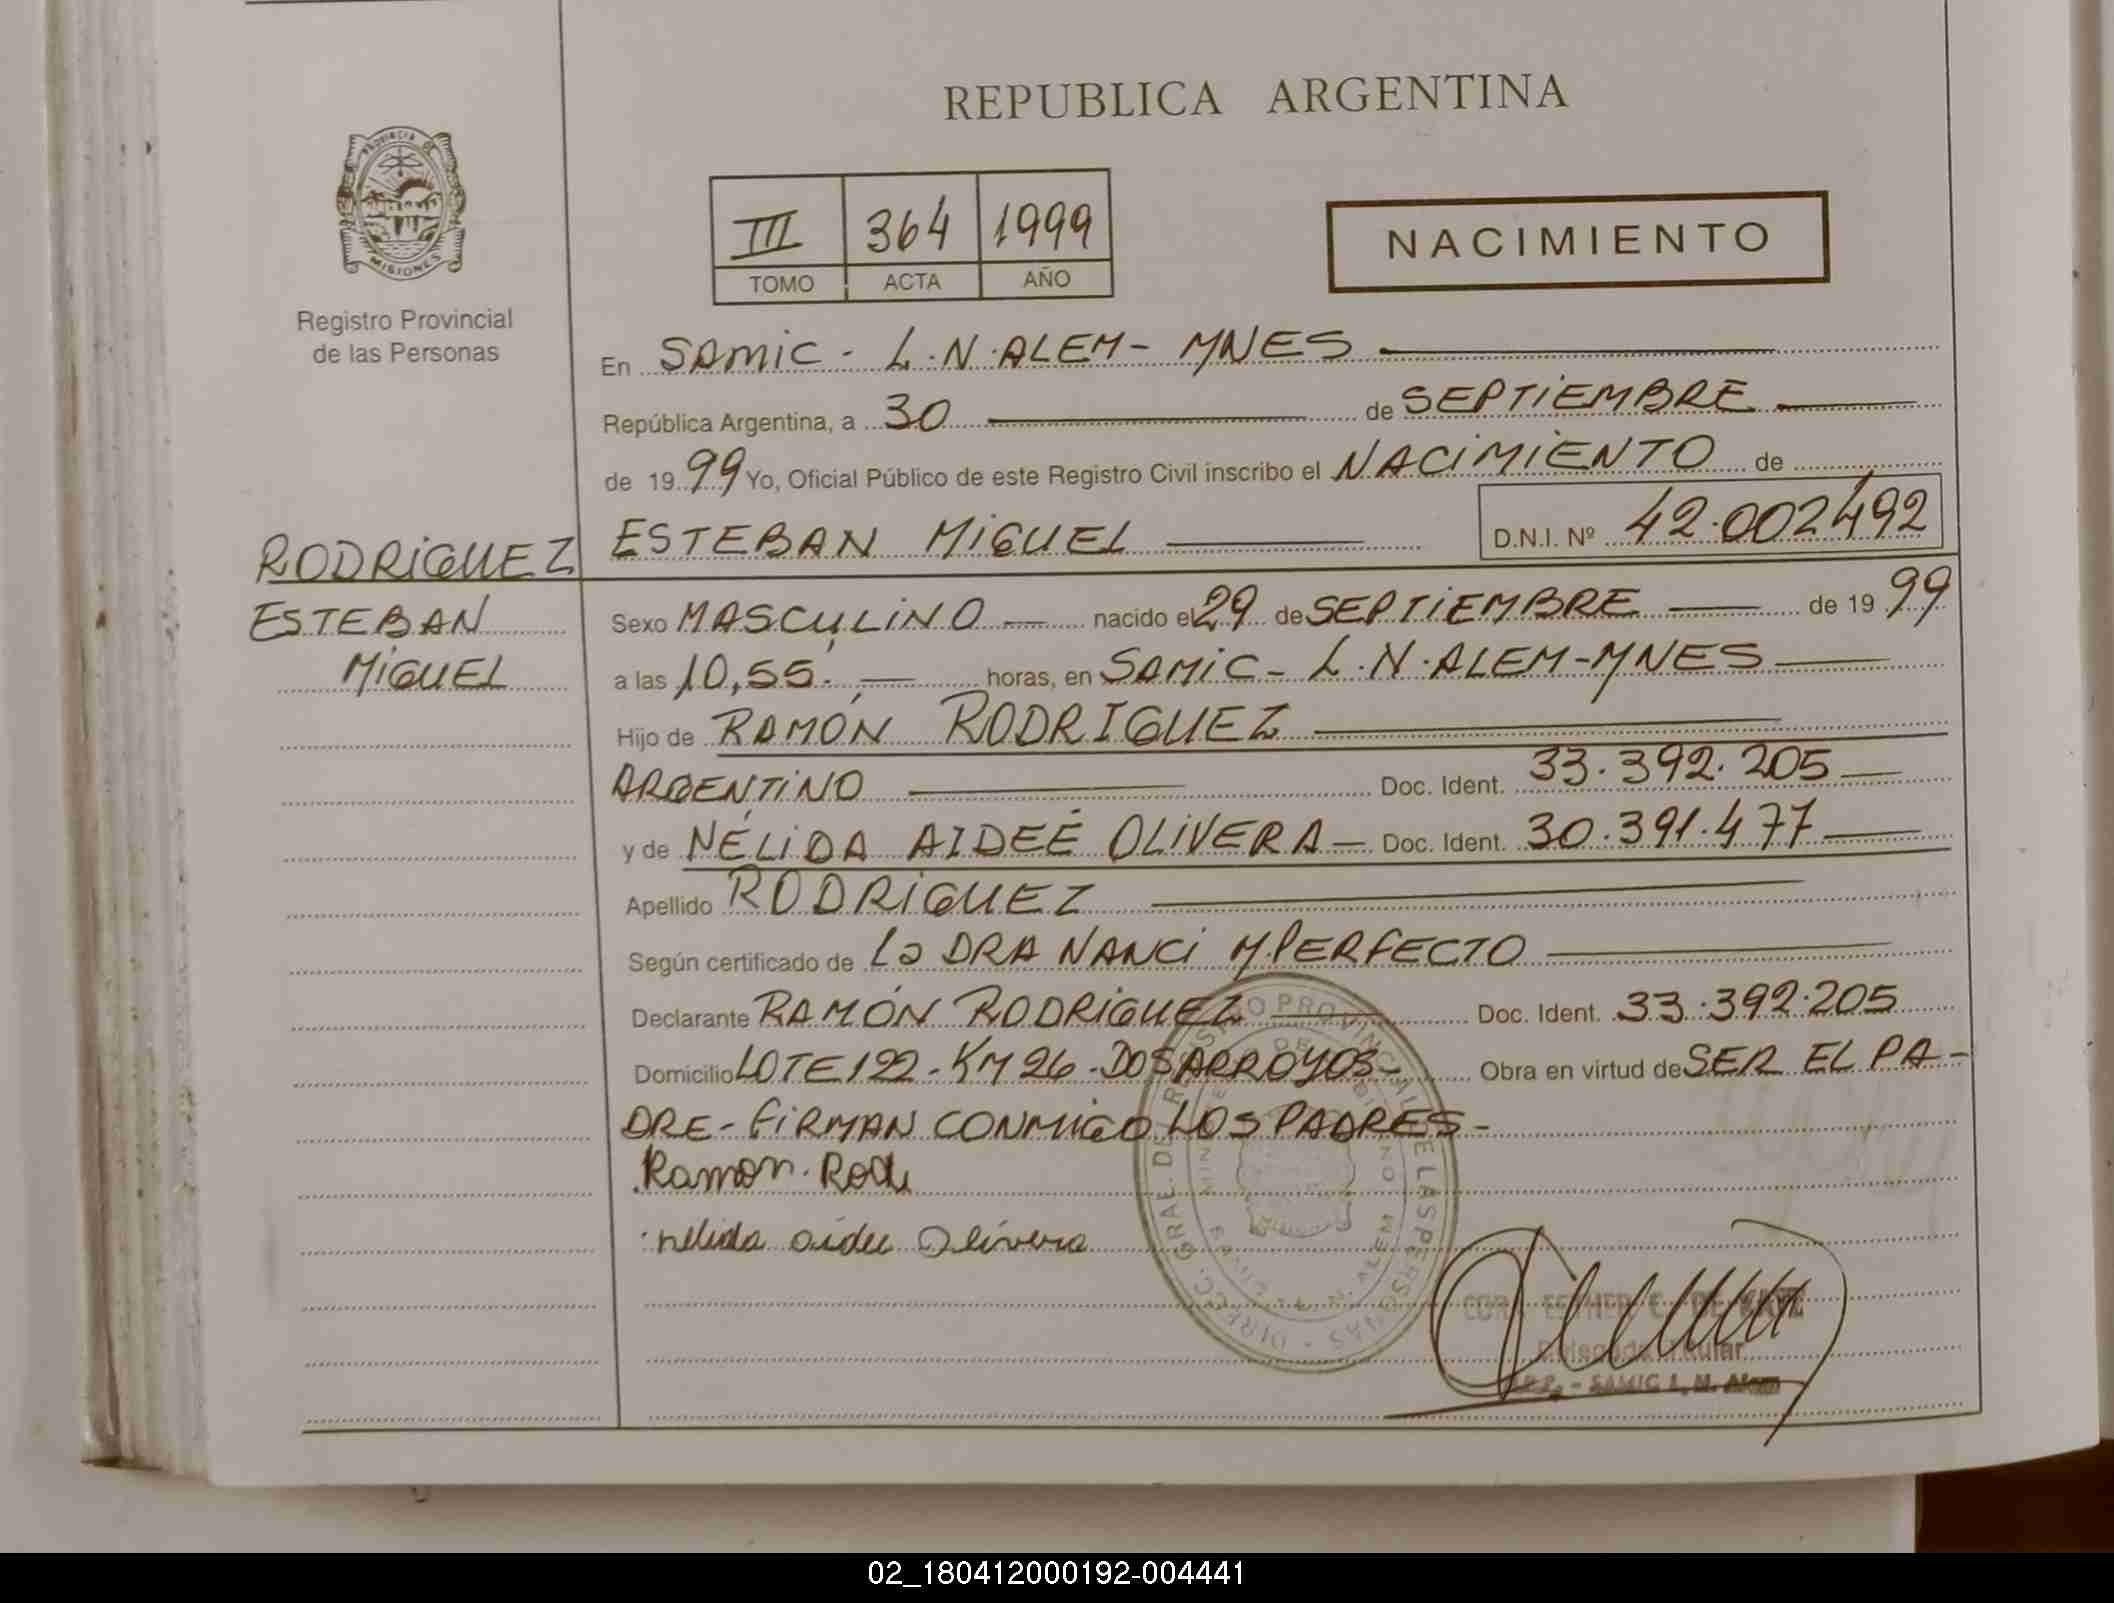 REPUBLICA ARGENTINA
PROVINCIA DE
MISIONES
Registro Provincial
de las Personas
III 364 1999
TOMO ACTA AÑO
NACIMIENTO
En SAMIC - L.N.ALEM - MNES
República Argentina, a 30 de SEPTIEMBRE
de 1999 Yo, Oficial Público de este Registro Civil inscribo el NACIMIENTO de
RODRIGUEZ ESTEBAN MIGUEL D.N.I. Nº 42.002492
ESTEBAN
MIGUEL
Sexo MASCULINO nacido el 29 de SEPTIEMBRE de 1999
a las 10,55. horas, en SAMIC - L.N.ALEM - MNES
Hijo de RAMÓN RODRIGUEZ
ARGENTINO Doc. Ident. 33.392.205
y de NÉLIDA AIDEÉ OLIVERA - Doc. Ident. 30.391.477
Apellido RODRIGUEZ
Según certificado de La DRA NANCI M.PERFECTO
Declarante RAMÓN RODRIGUEZ Doc. Ident. 33.392.205
Domicilio LOTE 122 - KM 26 - DOS ARROYOS - Obra en virtud de SER EL PA-
DRE - FIRMAN CONMIGO LOS PADRES -
Ramon. Rodr
nelida aidee Olivera
DIRECC. GRAL. DEL REGISTRO PROVINCIAL DE LAS PERSONAS
L. N. ALEM
Delegada Titular
SAMIC L. N. Alem
02_180412000192-004441